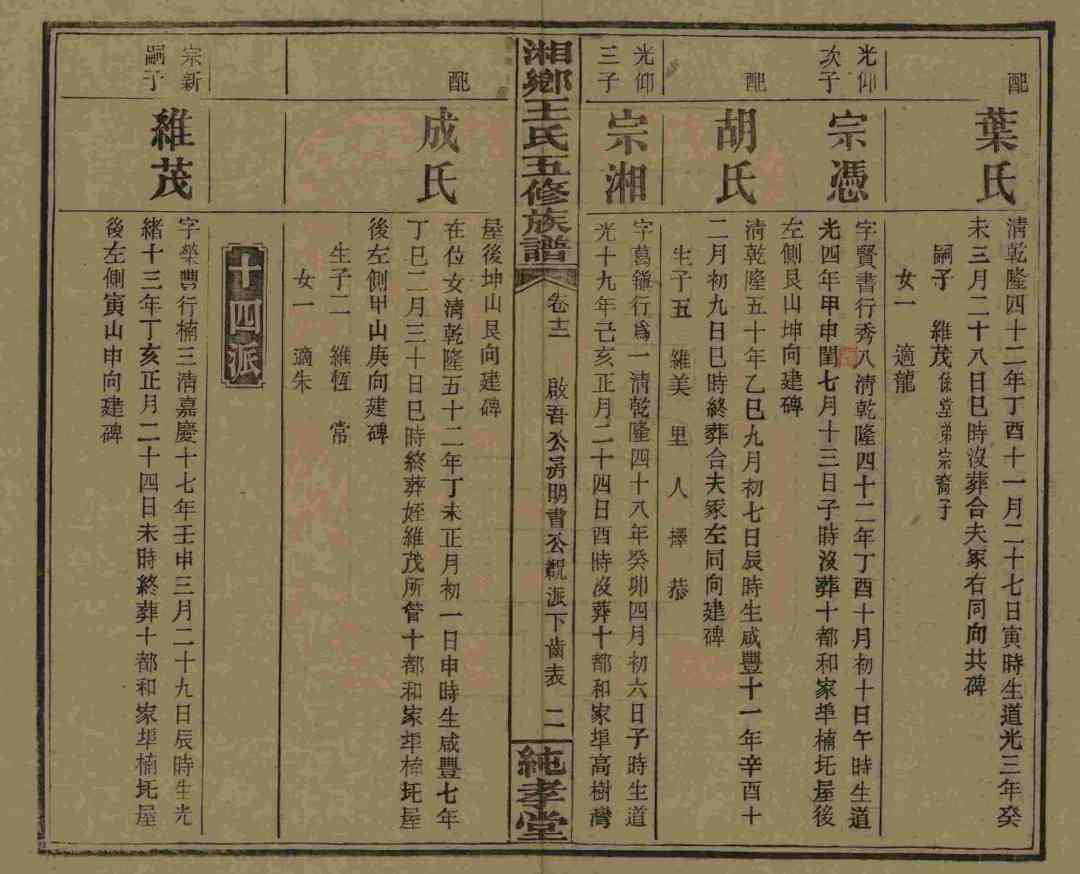 配
葉氏
清乾隆四十二年丁酉十一月二十七日寅時生道光三年癸
未三月二十八日巳時沒葬合夫冢右同向共碑
嗣子 維茂係堂弟宗裔子
女一 適龍
光仰
次子
宗憑
字賢書行秀八清乾隆四十二年丁酉十月初十日午時生道
光四年甲申閏七月十三日子時沒葬十都和家埠楠圫屋後
左側艮山坤向建碑
配
胡氏
清乾隆五十年乙巳九月初七日辰時生咸豐十一年辛酉十
二月初九日巳時終葬合夫冢左同向建碑
生子五 維美 里 人 擇 恭
光仰
三子
宗湘
字葛鎮行爲一清乾隆四十八年癸卯四月初六日子時生道
光十九年己亥正月二十四日酉時沒葬十都和家埠高樹灣
湘鄉王氏五修族譜
卷十二 啟吾公房明書公親派下齒表 二
純孝堂
屋後坤山艮向建碑
配
成氏
在位女清乾隆五十二年丁未正月初一日申時生咸豐七年
丁巳二月三十日巳時終葬姪維茂所管十都和家埠楠圫屋
後左側甲山庚向建碑
生子二 維恆 常
女一 適朱
十四派
宗新
嗣子
維茂
字榮豐行楠三清嘉慶十七年壬申三月二十九日辰時生光
緒十三年丁亥正月二十四日未時終葬十都和家埠楠圫屋
後左側寅山申向建碑